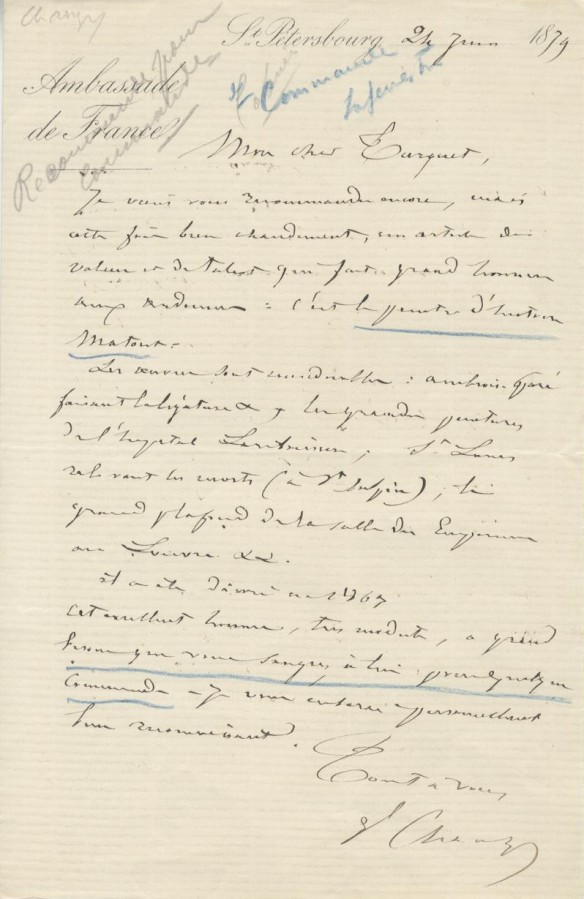 Chanzy
St. Pétersbourg 24 Juin 1879
Ambassade
de France
Recommandé pour
Commande
Mon cher Turquet,
Je viens vous recommander encore, mais
cette fois bien chaudement, un artiste de
valeur et de talent qui fait grand honneur
aux Ardennes : c'est le peintre d'histoire
Matout.
Ses œuvres sont considérables : ambroise Paré
faisant la ligature &, les grandes peintures
de l'hopital Lariboisière, St
les morts (à St Sulpice), le
grand plafond de la salle des Empereurs
au Louvre &&.
il a été décoré en 1867
cet excellent homme, très modeste, a grand
besoin que vous songiez à lui pour quelque
Commande - Je vous en serai personnellement
bien reconnaissant.
Tout à vous,
Gl Chanzy